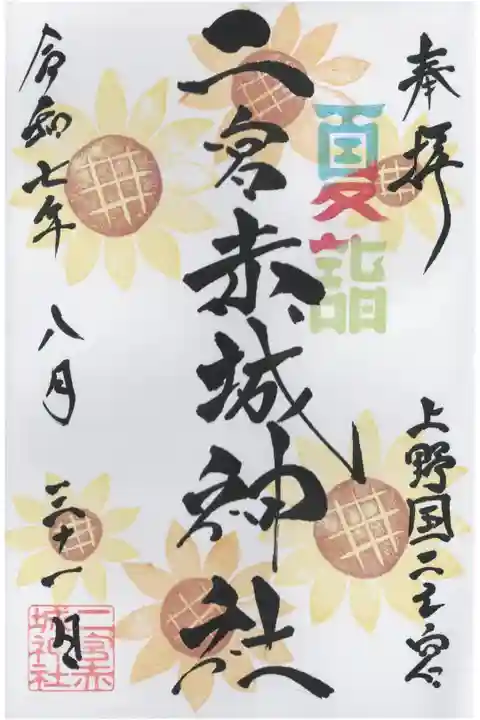 奉拝
夏詣
上野国二之宮
二宮赤城神社
令和七年 八月 三十一日
二宮赤
城神社